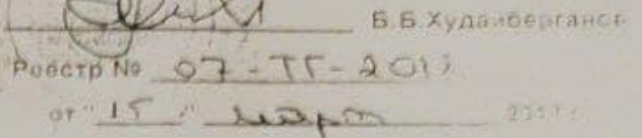 Б.Б.Худайберганов
Реестр № 07-ТГ-2017
от "15 " март